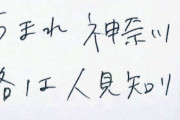 うまれ 神奈川
格は人見知り